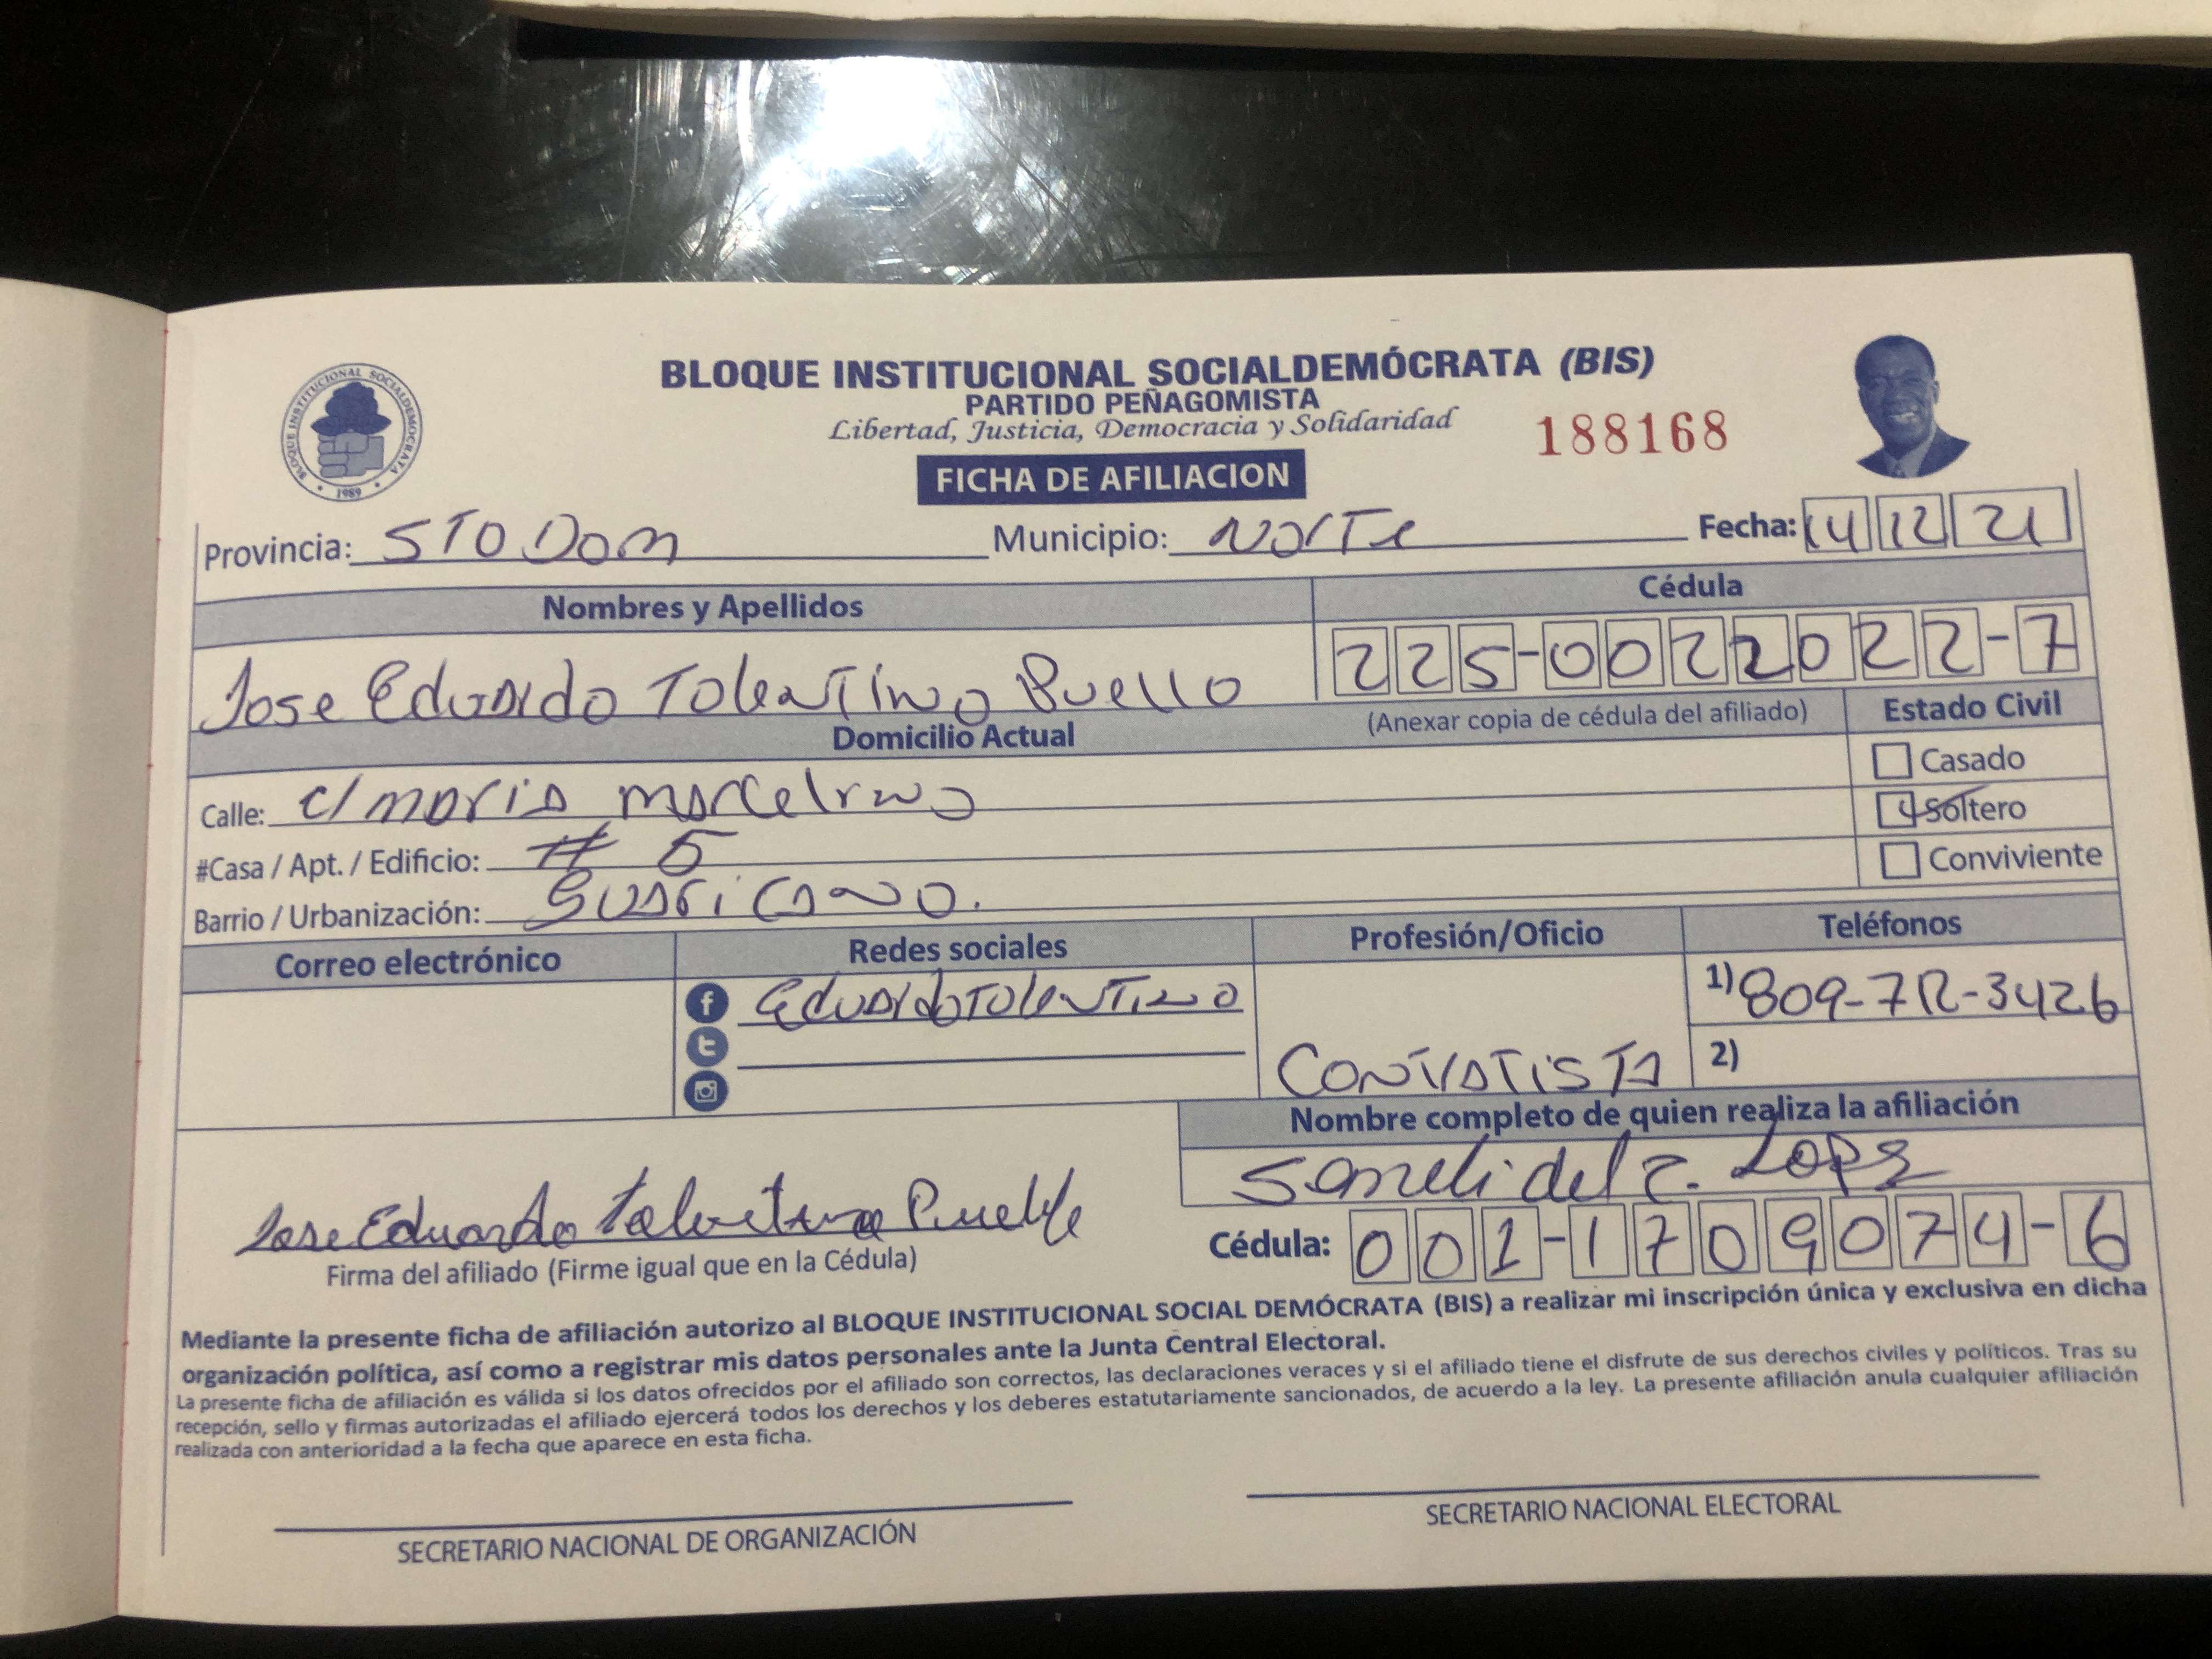 BLOQUE INSTITUCIONAL SOCIALDEMÓCRATA (BIS)
PARTIDO PEÑAGOMISTA
Libertad, Justicia, Democracia y Solidaridad
188168
BLOQUE INSTITUCIONAL SOCIALDEMOCRATA
1989
FICHA DE AFILIACION
Provincia: STO DOM Municipio: NOrTe Fecha: 14 12 21
Nombres y Apellidos Cédula
Jose Eduardo TolenTino Puello 225-0022022-7
Domicilio Actual (Anexar copia de cédula del afiliado) Estado Civil
Calle: c/ maria marcelino Casado
#Casa / Apt. / Edificio: # 5 Soltero
Barrio / Urbanización: Guaricano. Conviviente
Correo electrónico Redes sociales Profesión/Oficio Teléfonos
EduardoTolenTino 1) 809-712-3426
ConTraTisTa 2)
Nombre completo de quien realiza la afiliación
del C. Lopez
Jose Eduardo Tolentino Puello
Cédula: 001-1709074-6
Firma del afiliado (Firme igual que en la Cédula)
Mediante la presente ficha de afiliación autorizo al BLOQUE INSTITUCIONAL SOCIAL DEMÓCRATA (BIS) a realizar mi inscripción única y exclusiva en dicha
organización política, así como a registrar mis datos personales ante la Junta Central Electoral.
La presente ficha de afiliación es válida si los datos ofrecidos por el afiliado son correctos, las declaraciones veraces y si el afiliado tiene el disfrute de sus derechos civiles y políticos. Tras su
recepción, sello y firmas autorizadas el afiliado ejercerá todos los derechos y los deberes estatutariamente sancionados, de acuerdo a la ley. La presente afiliación anula cualquier afiliación
realizada con anterioridad a la fecha que aparece en esta ficha.
SECRETARIO NACIONAL DE ORGANIZACIÓN SECRETARIO NACIONAL ELECTORAL